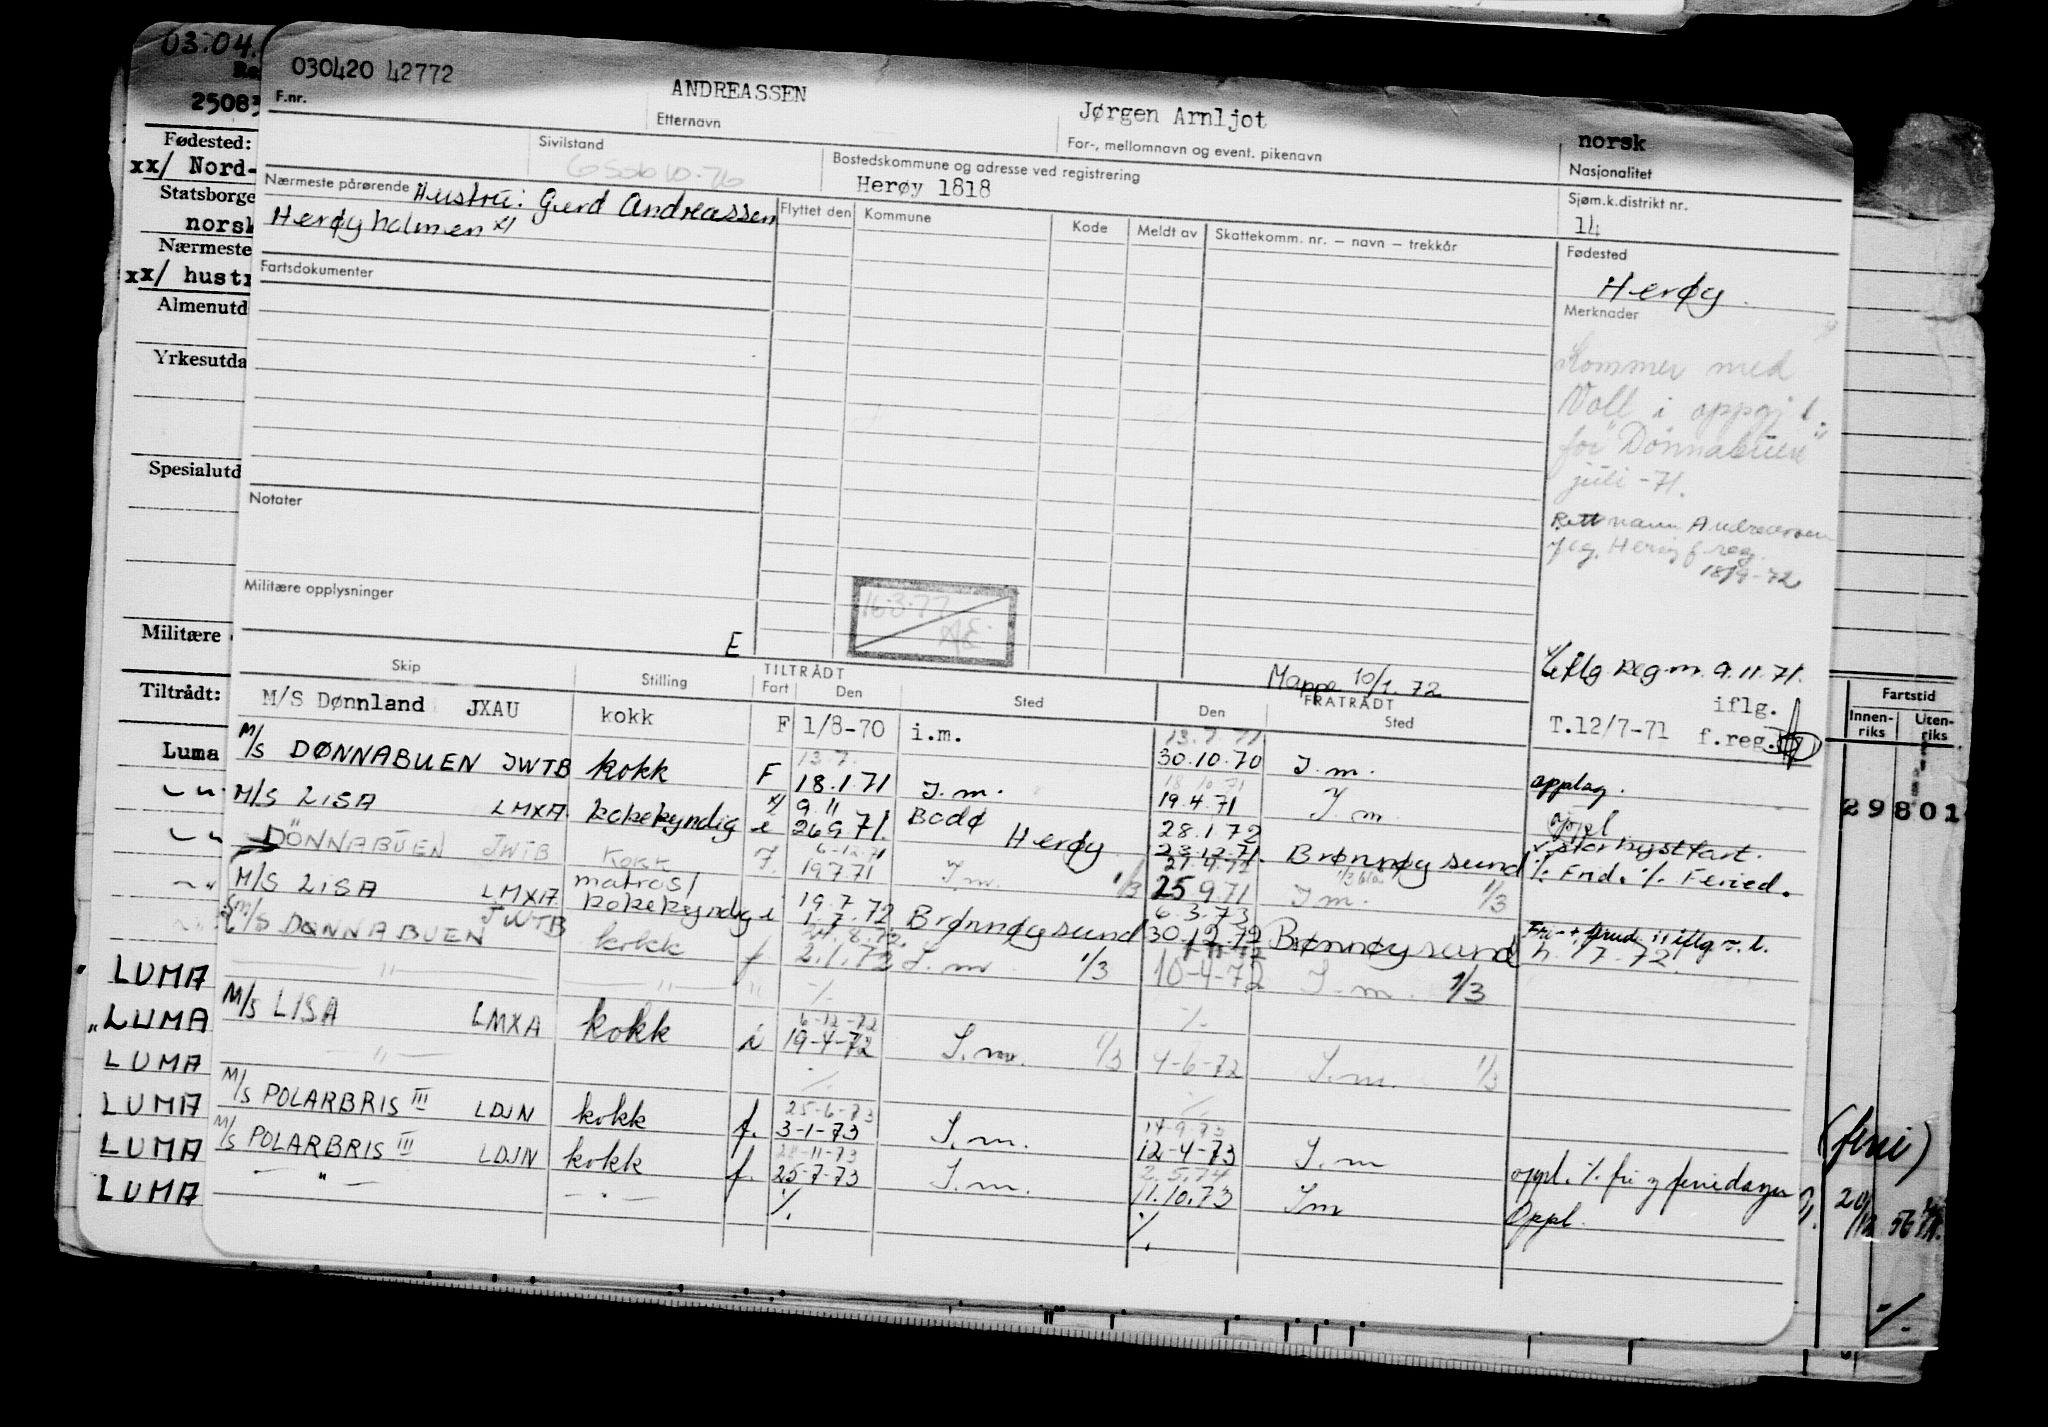 03.04.
25083
Fødested:
xx/ Nord-
Statsborge
norsk
Nærmeste
xx/ hustr
Almenutd
Yrkesutda
Spesialutd
Militære
Tiltrådt:
Luma
LUMA
"LUMA
LUMA
LUMA
LUMA
LUMA
030420 42772
F.nr.
ANDREASSEN
Etternavn
Jørgen Arnljot
For-, mellomnavn og event. pikenavn
norsk
Nasjonalitet
Sivilstand
Bostedskommune og adresse ved registrering
Herøy 1818
Sjøm.k.distrikt nr.
14
Nærmeste pårørende Hustru: Gerd Andreassen
Herøyholmen x/
Flyttet den Kommune Kode Meldt av Skattekomm. nr. – navn – trekkår
Fødested
Herøy
Fartsdokumenter
Merknader
Kommer med
Voll i oppgj.
for "Dønnabuen"
juli -71.
Rett navn Andreassen
18/9-72
Notater
Militære opplysninger
E
16.3.77
AE
iflg reg.m. 9.11.71.
Mappe 10/1.72
Skip Stilling TILTRÅDT Fart Den Sted FRATRÅDT Den Sted
M/S Dønnland JXAU kokk F 1/8-70 i.m. 13.7.71. 30.10.70 I.m. T.12/7-71 iflg. f.reg.
M/S DØNNABUEN JWTB kokk F 13.7. 18.1.71 I.m. 19.4.71 I.m. opplag.
M/S LISA LMXA kokekyndig i x/ 9.11 26.9.71. Bodø Herøy 28.1.72 23.12.71. Brønnøysund oppl
DÖNNABUEN JWTB kokk F. 6-12-71 19.7.71 I.m. 1/3 25.9.71 I.m. 1/3 % Frid. % Feried.
M/S LISA LMXA matros/ kokekyndig i 19.7.72 1.7.72 Brønnøysund 6.3.73 30.12.72 Brønnøysund
M/S DØNNABUEN JWTB kokk f 2.1.72 I.m. 1/3 10-4-72 I.m. 1/3
— " — — " — " % %
M/S LISA LMXA kokk i 6-12-72 19-4-72 I.m. 1/3 4-6-72 I.m. 1/3
— " — % %
M/S POLARBRIS III LDJN kokk f. 25-6-73 3-1-73 I.m. 14-9-73 12-4-73 I.m
M/S POLARBRIS III LDJN kokk f. 28-11-73 25-7-73 I.m. 2.5.74 11.10.73 Im oppl. % fri og feriedager
— " — — " — % % Oppl.
Fartstid
Innen-
riks
Uten-
riks
29801
(ferie)
%.